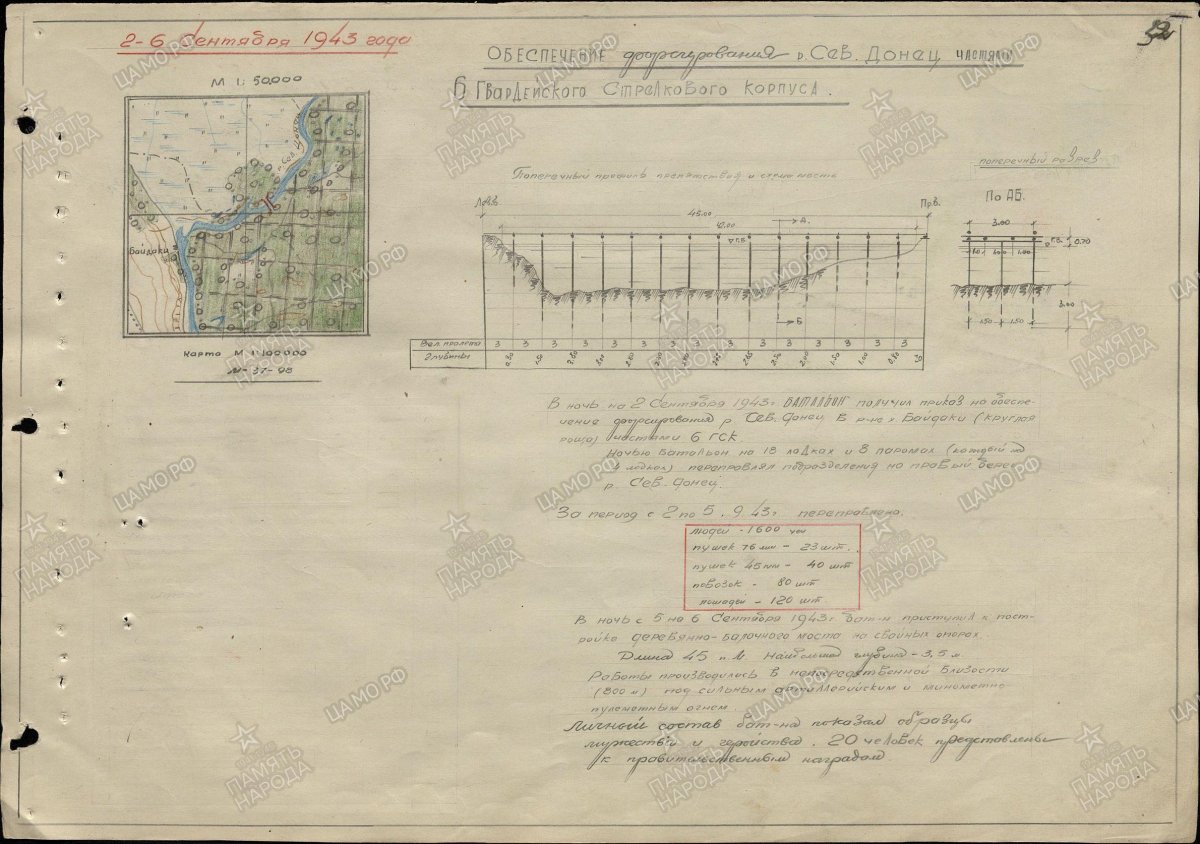 32
2-6 Сентября 1943 года
М 1:50,000
р. Сев. Донец
Байдаки
Карта М 1:100000
М-37-98
Обеспечение форсирования р. Сев. Донец частями
6 Гвардейского Стрелкового Корпуса.
Поперечный профиль препятствия и схема моста
поперечный разрез
По АБ.
Л.в.в.
Пр.в.
45.00
42.00
А.
Г.В.
Б
3.00
Г.В.
0.70
1.00
1.50 1.50
3.00
Вел. пролета 3 3 3 3 3 3 3 3 3 3 3 3 3 3 3
Глубины
В ночь на 2 Сентября 1943 г. Батальон получил приказ на обеспе-
чение форсирования р. Сев. Донец в р-не х. Байдаки (круглая
роща) частями 6 ГСК.
Ночью батальон на 18 лодках и 8 паромах (каждый из
лодках) переправлял подразделения на правый берег
р. Сев. Донец.
За период с 2 по 5.9.43 г. переправлено.
людей - 1600 чел
пушек 76 мм - 23 шт.
пушек 45 мм - 40 шт
повозок - 80 шт
лошадей - 120 шт.
В ночь с 5 на 6 Сентября 1943 г. бат-н приступил к пост-
ройке деревянно-балочного моста на свайных опорах.
Длина 45 п.м. Наибольшая глубина - 3,5 м.
Работы производились в непосредственной близости
(800 м) под сильным артиллерийским и минометно-
пулеметным огнем.
Личный состав бат-на показал образцы
мужества и геройства. 20 человек представлены
к правительственным наградам.
ЦАМО РФ
ПАМЯТЬ НАРОДА